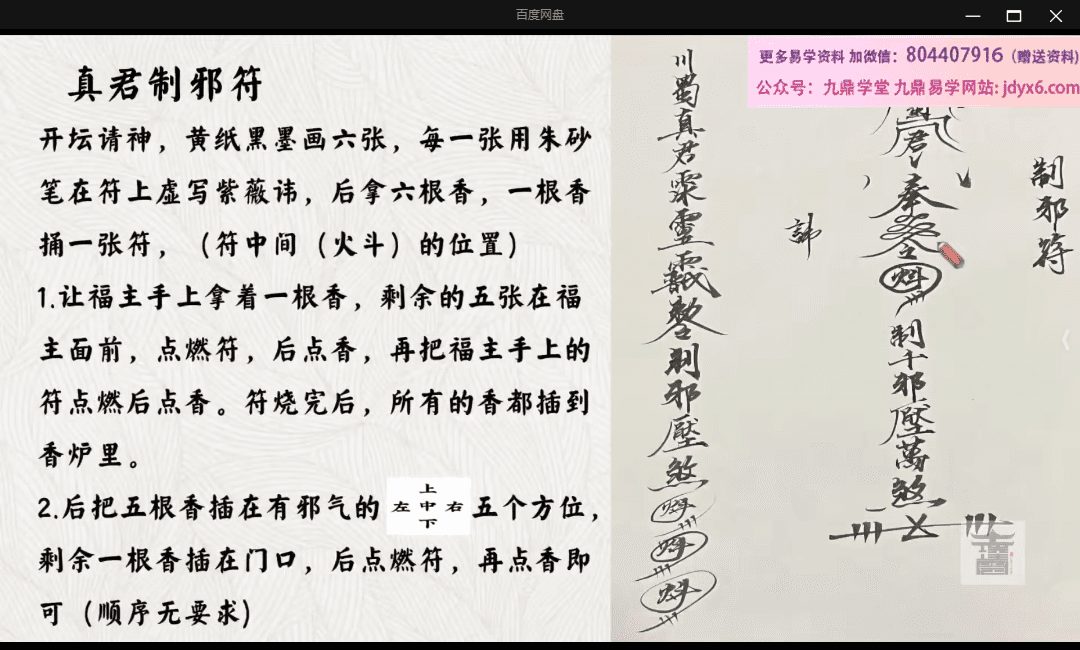 百度网盘
真君制邪符
开坛请神，黄纸黑墨画六张，每一张用朱砂
笔在符上虚写紫薇讳，后拿六根香，一根香
捅一张符，（符中间（火斗）的位置）
1.让福主手上拿着一根香，剩余的五张在福
主面前，点燃符，后点香，再把福主手上的
符点燃后点香。符烧完后，所有的香都插到
香炉里。
2.后把五根香插在有邪气的
上
左中右
下
五个方位，
剩余一根香插在门口，后点燃符，再点香即
可（顺序无要求）
更多易学资料 加微信：804407916（赠送资料）
公众号：九鼎学堂 九鼎易学网站: jdyx6.com
制邪符
君
奉
令
制千邪壓萬煞
諱
川蜀真君
制邪壓煞